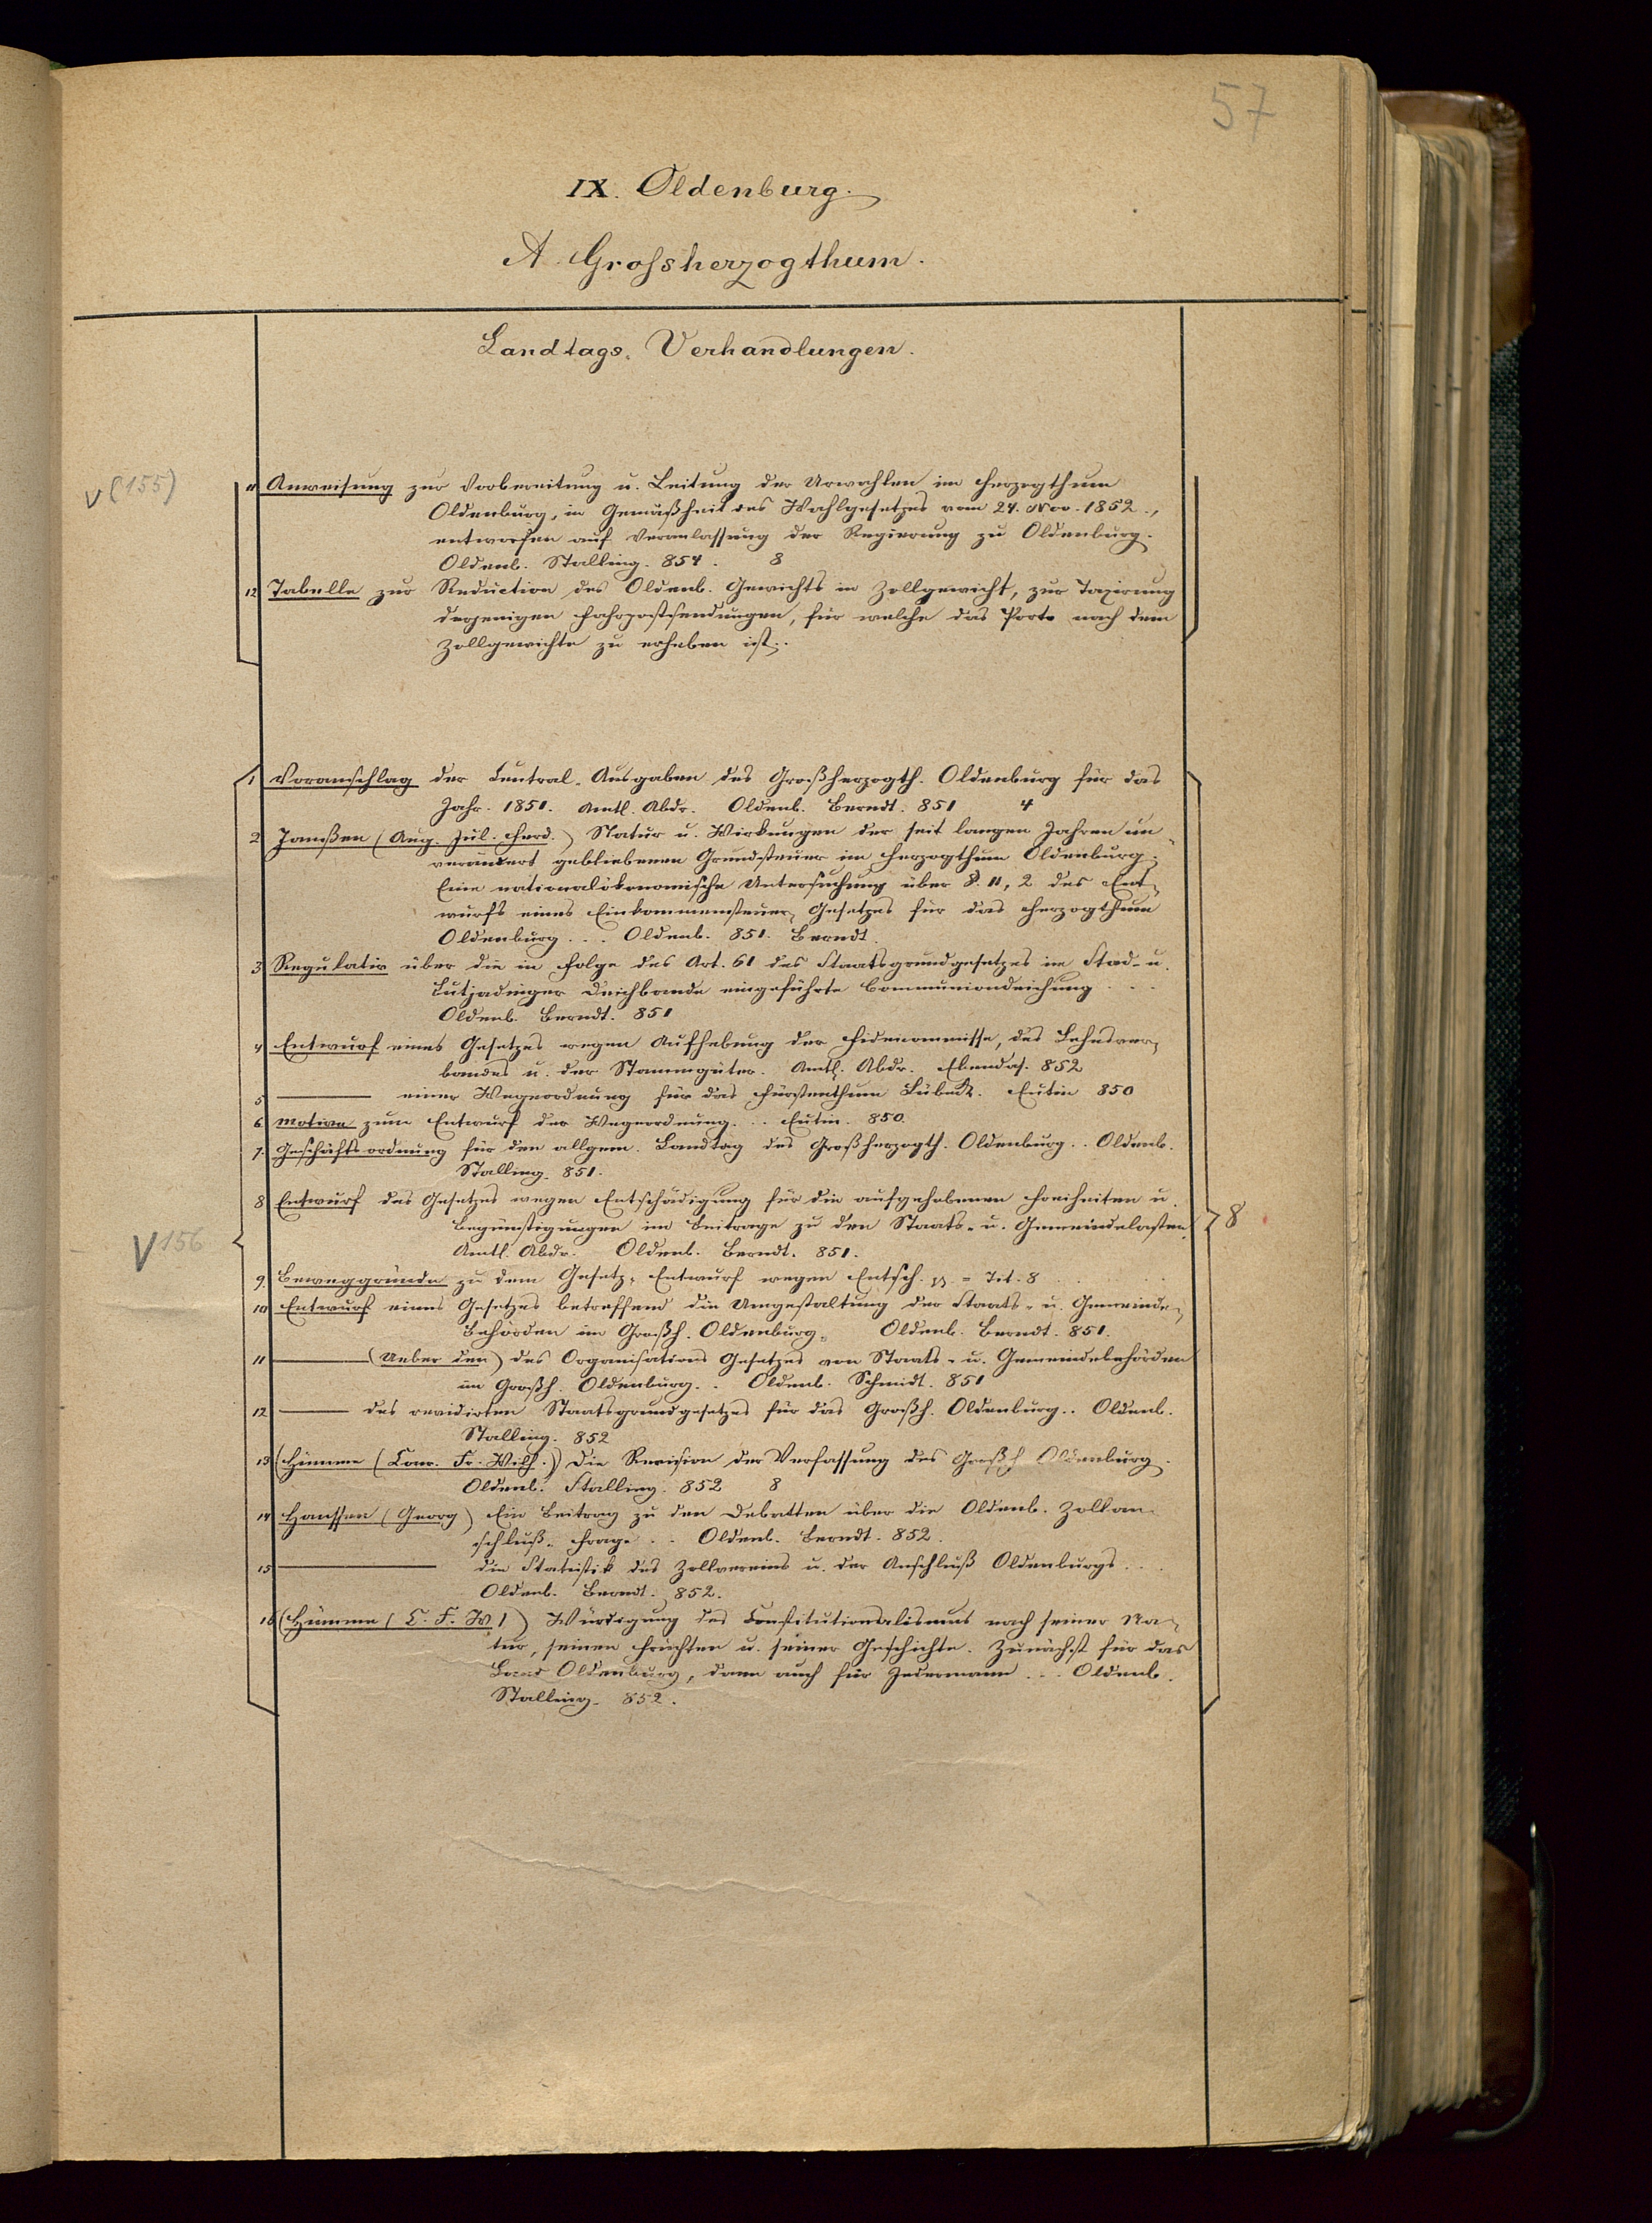 57
IX. Oldenburg.
A Grossherzogthum.
Landtags-Verhandlungen.
V (155)
11 Anweisung zur Vorbereitung u. Leitung der Urwahlen im Herzogthum
Oldenburg, in Gemäßheit des Wahlgesetzes vom 24. Nov. 1852.,
entworfen auf Veranlassung der Regierung zu Oldenburg.
Oldenb. Stalling. 854. 8
12 Tabelle zur Reduction des Oldenb. Gewichts in Zollgewicht, zur Taxirung
derjenigen Fahrpostsendungen, für welche das Porto nach dem
Zollgewichte zu erheben ist..
1 Voranschlag der Central-Ausgaben des Großherzogth. Oldenburg für das
Jahr 1851. Amtl. Abdr. Oldenb. Berndt. 851 4
2 Janßen (Aug. Jul. Ferd.) Natur u. Wirkungen der seit langen Jahren un
verändert gebliebenen Grundsteuer im Herzogthum Oldenburg.
Eine nationalökonomische Untersuchung über §. 11, 2 des Ent-
wurfs eines Einkommensteuer-Gesetzes für das Herzogthum
Oldenburg... Oldenb. 851. Berndt.
3 Regulativ über die in Folge des Art. 61 des Staatsgrundgesetzes im Stad- u.
Butjadinger Deichbande eingeführte Communiondeichung...
Oldenb. Berndt. 851
4 Entwurf eines Gesetzes wegen Aufhebung der Fideicommisse, des Lehnsver-
bandes u. der Stammgüter. Amtl. Abdr. Ebendas. 852
5 ——— einer Wegeordnung für das Fürstenthum Lübeck. Eutin 850
6 Motive zum Entwurf der Wegeordnung... Eutin. 850.
7. Geschäftsordnung für den allgem. Landtag des Großherzogth. Oldenburg.. Oldenb.
Stalling. 851.
8 Entwurf des Gesetzes wegen Entschädigung für die aufgehobenen Freiheiten u.
Begünstigungen im Beitrage zu den Staats- u. Gemeindelasten.
8
Amtl. Abdr. Oldenb. Berndt. 851.
V 156
9. Beweggründe zu dem Gesetz-Entwurf wegen Entsch. = Tit. 8
10 Entwurf eines Gesetzes betreffend die Umgestaltung der Staats- u. Gemeinde-
Behörden im Großh. Oldenburg. Oldenb. Berndt. 851.
11 ——— (Ueber den) des Organisations Gesetzes von Staats- u. Gemeindebehörden
im Großh. Oldenburg.. Oldenb. Schmidt. 851
12 ——— des revidirten Staatsgrundgesetzes für das Großh. Oldenburg.. Oldenb.
Stalling. 852
13 (Hümme (Conr. Fr. Wilh.)) Die Revision der Verfassung des Großh Oldenburg.
Oldenb. Stalling. 852 8
14 Hanssen (Georg) Ein Beitrag zu den Debatten über die Oldenb. Zollan-
schluß-Frage.. Oldenb. Berndt. 852.
15 ——— die Statistik des Zollvereins u. der Anschluß Oldenburgs...
Oldenb. Berndt. 852.
16 (Hümme (C. F. W.)) Würdigung des Constitutionalismus nach seiner Na-
tur, seinen Früchten u. seiner Geschichte. Zunächst für das
Land Oldenburg, dann auch für Jedermann... Oldenb.
Stalling. 852.